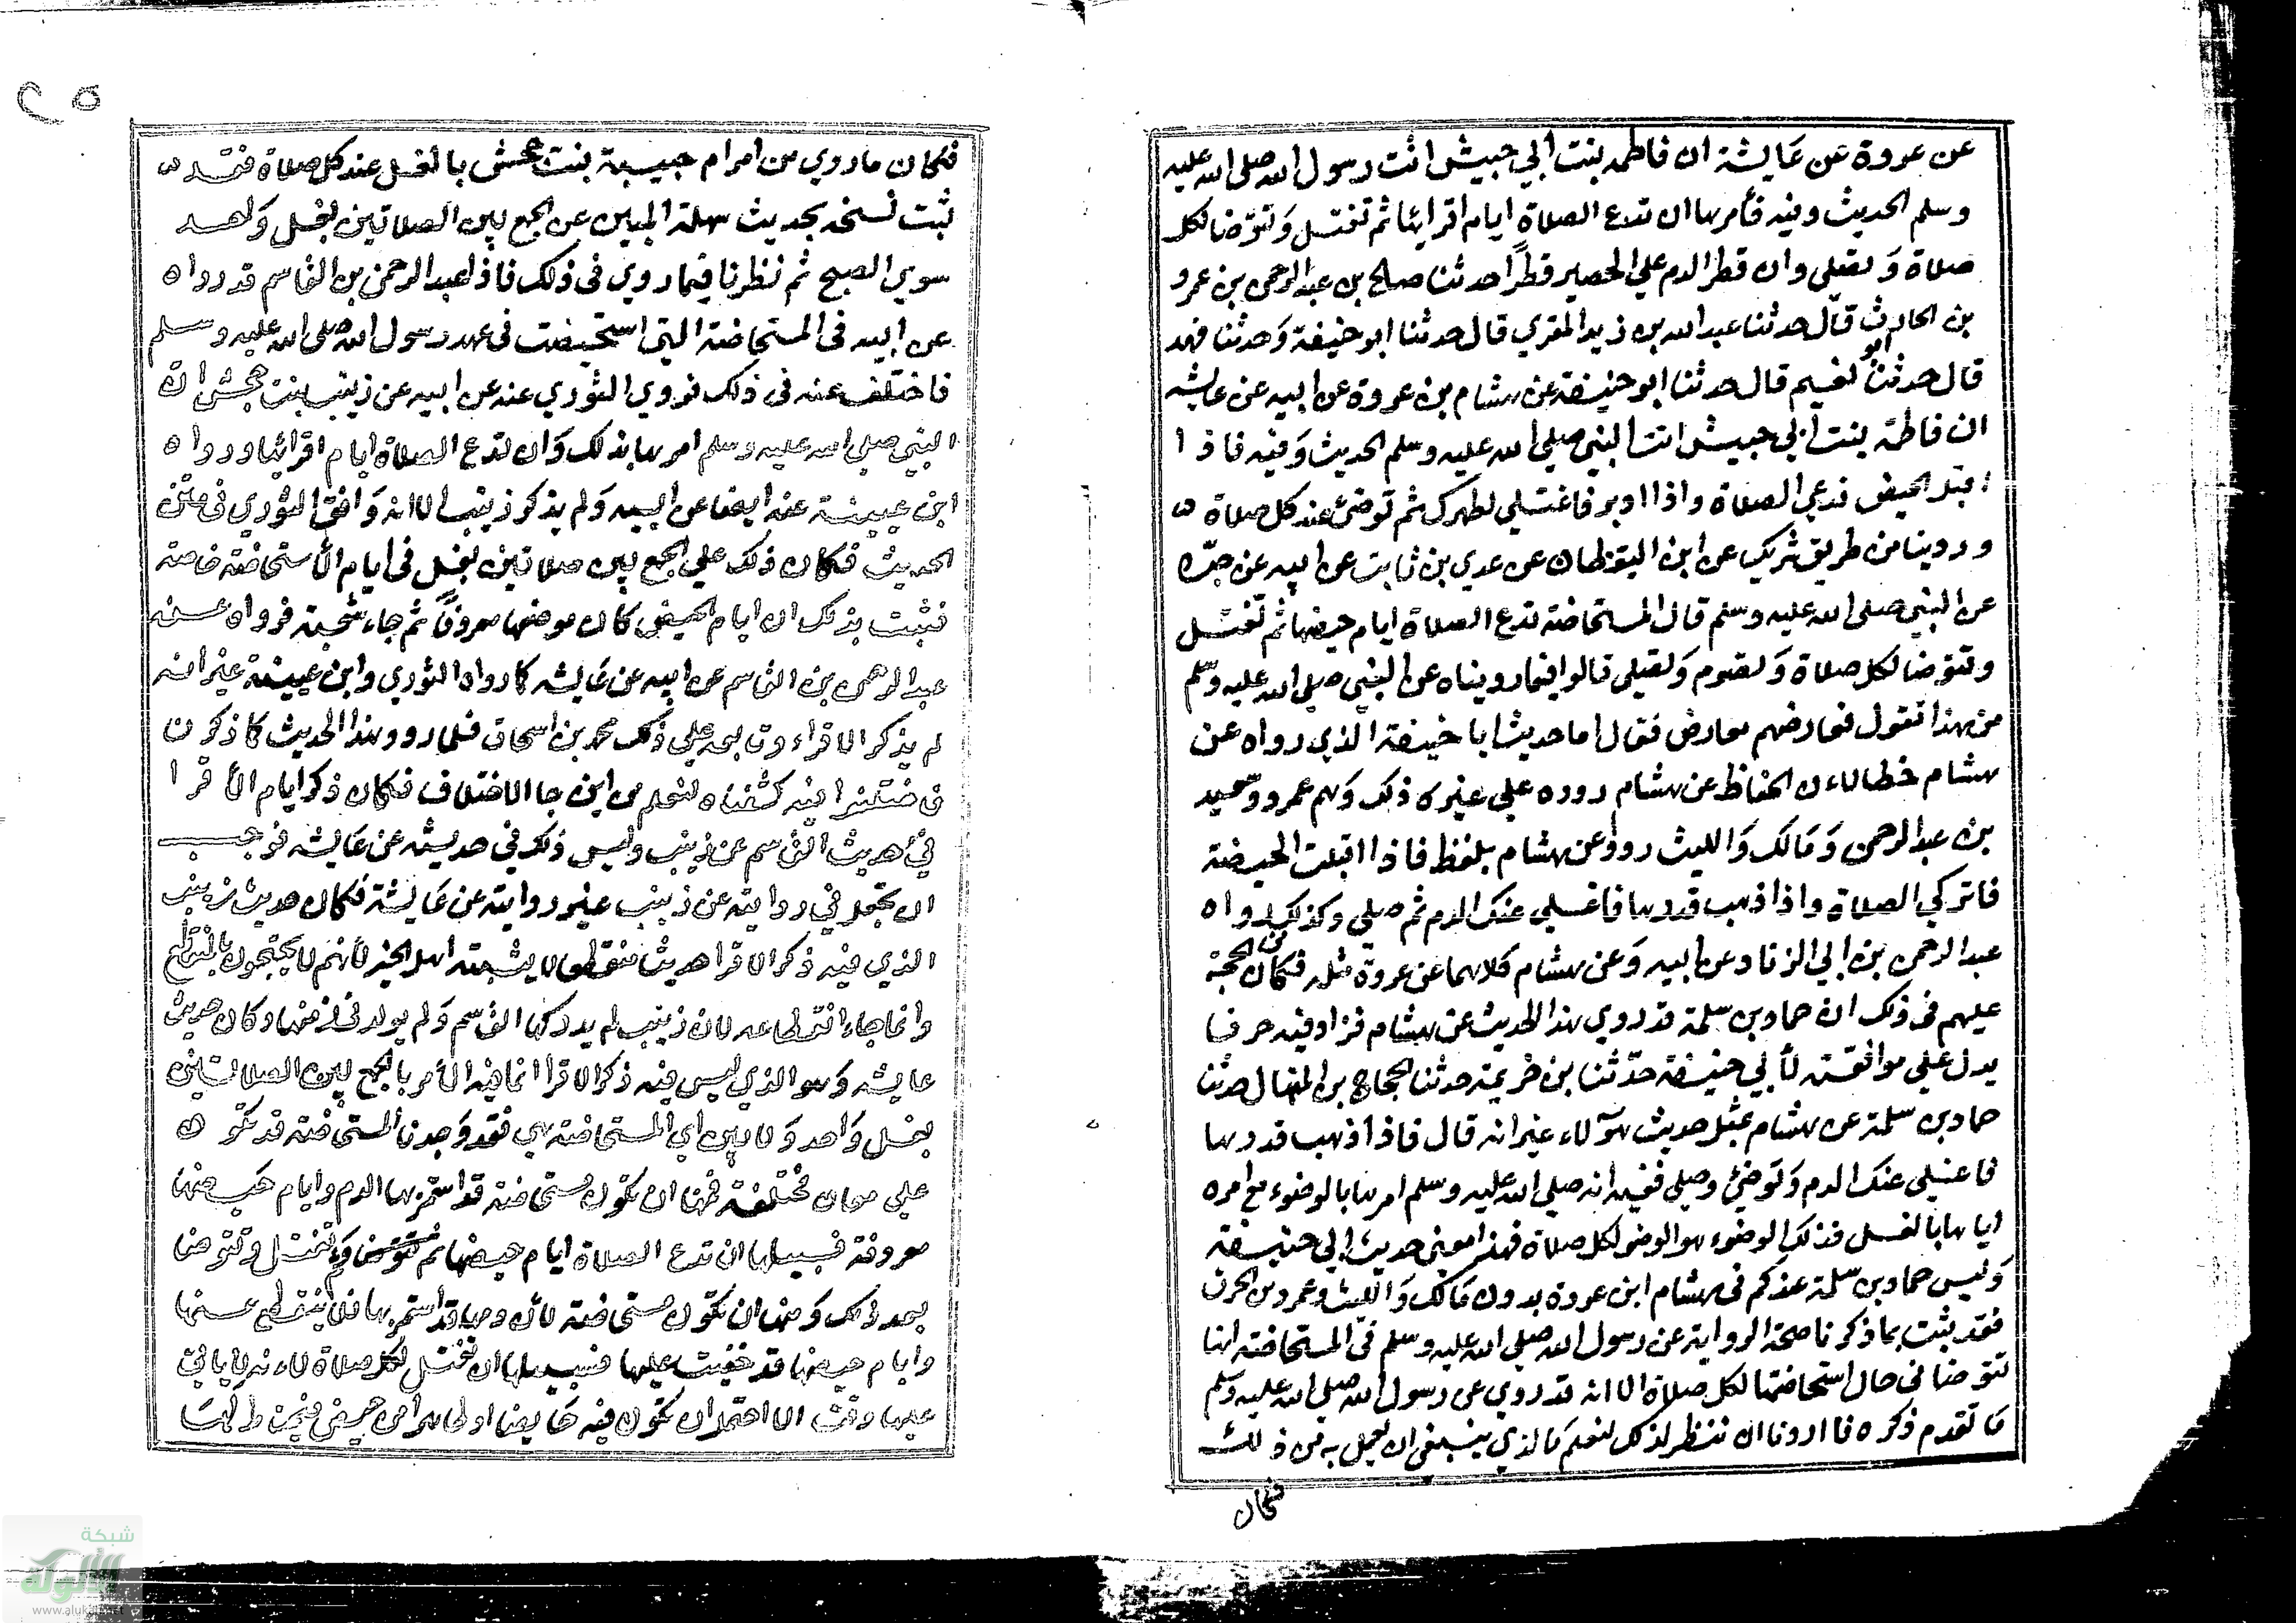 عن عروة عن عايشة ان فاطمه بنت ابي حبيش اتت رسول الله صلى الله عليه
وسلم الحديث وفيه فأمرها ان تدع الصلاة ايام اقرايها ثم تغتسل وتتوضا لكل
صلاة وتصلي وان قطر الدم علي الحصير قطرا حدثنا صالح بن عبد الرحمن بن عمرو
بن الحارث قال حدثنا عبد الله بن زيد المقري قال حدثنا ابو حنيفة وحدثنا فهد
قال حدثنا ابو نعيم قال حدثنا ابو حنيفة عن هشام بن عروة عن ابيه عن عايشه
ان فاطمة بنت ابي حبيش اتت النبي صلي الله عليه وسلم الحديث وفيه فاذا
اقبل الحيض فدعي الصلاة واذا ادبر فاغتسلي لطهرك ثم توضئ عند كل صلاة
وروينا من طريق شريك عن ابن اليقظان عن عدي بن ثابت عن ابيه عن جده
عن النبي صلى الله عليه وسلم قال المستحاضة تدع الصلاة ايام حيضها ثم تغتسل
وتتوضا لكل صلاة وتصوم وتصلي قالوا فيما رويناه عن النبي صلي الله عليه وسلم
من هذا نقول فعارضهم معارض فقال اما حديث ابا حنيفة الذي رواه عن
هشام خطا لاءن الحفاظ عن هشام رووه علي غيره ذلك وهم عمرو وسعيد
بن عبد الرحمن ومالك والليث رووا عن هشام بلفظ فاذا اقبلت الحيضة
فاتركي الصلاة واذا ذهب قدرها فاغسلي عنك الدم ثم صلي وكذلك رواه
عبد الرحمن بن ابي الزناد عن ابيه وعن هشام كلاهما عن عروة مثله فكان من الحجة
عليهم في ذلك ان حماد بن سلمة قد روي هذا الحديث عن هشام فزاد فيه حرفا
يدل علي موافقته لأبي حنيفة حدثنا بن خزيمة حدثنا الحجاج بن المنهال حدثنا
حماد بن سلمة عن هشام بمثل حديث هؤلاء غير انه قال فاذا ذهب قدرها
فاغسلي عنك الدم وتوضئ وصلي ففيه انه صلي الله عليه وسلم امرها بالوضوء مع امره
اياها بالغسل فذلك الوضوء هو الوضو لكل صلاة فهذا معني حديث ابي حنيفة
وليس حماد بن سلمة عندكم في هشام ابن عروة بدون مالك والليث وعمرو بن الحرث
فقد يثبت بما ذكرنا صحة الرواية عن رسول الله صلي الله عليه وسلم في المستحاضة انها
تتوضا في حال استحاضتها لكل صلاة الا انه قد روي عن رسول الله صلي الله عليه وسلم
ما تقدم ذكره فاردنا ان ننظر لذلك لنعلم ما الذي ينبغي ان يعمل به من ذلك
فكان
٢٥
فكان ما روي من امر ام حبيبة بنت جحش بالغسل عند كل صلاة فقد
ثبت نسخه بحديث سهلة المبين عن الجمع بين الصلاتين بغسل واحد
سوي الصبح ثم نظرنا فيما روي في ذلك فاذا عبد الرحمن بن القاسم قد رواه
عن ابيه في المستحاضة التي استحيضت في عهد رسول الله صلى الله عليه وسلم
فاختلف عنه في ذلك فروي الثوري عنه عن ابيه عن زينب بنت جحش ان
النبي صلي الله عليه وسلم امرها بذلك وان تدع الصلاة ايام اقرائها ورواه
ابن عيينة عنه ايضا عن ابيه ولم يذكر زينب الا انه وافق الثوري في متن
الحديث فكان ذلك علي الجمع بين صلاتين بغسل في ايام الأستحاضة خاصة
فثبت بذلك ان ايام الحيض كان موضعها معروفا ثم جاء شعبة فرواه عن
عبد الرحمن بن القاسم عن ابيه عن عايشه كما رواه الثوري وابن عيينة غير انه
لم يذكر الاقراء وتابعه علي ذلك محمد بن اسحاق فلما روو هذا الحديث كما ذكرنا
فاختلفوا فيه كشفناه لنعلم من اين جا الاختلاف فكان ذكر ايام الأقرا
في حديث القاسم عن زينب وليس ذلك في حديثه عن عايشه فوجب
ان يجعل في روايته عن زينب غير روايته عن عايشة فكان حديث زينب
الذي فيه ذكر الاقرا حديث منقطع لا يثبته اهل الخبر لأنهم لا يحتجون بالمنقطع
وانما جاء انقطاعه لان زينب لم يدركها القاسم ولم يولد في زمنها وكان حديث
عايشه وهو الذي ليس فيه ذكر الاقرا انما فيه الأمر بالجمع بين الصلاتين
بغسل واحد ولا بين اي المستحاضة هي فقد وجدنا المستحاضة قد تكون
علي معان مختلفة فمنها ان تكون مستحاضة قد استمر بها الدم وايام حيضها
معروفة فسبيلها ان تدع الصلاة ايام حيضها ثم تغتسل وتتوضا
بعد ذلك ومنها ان تكون مستحاضة لأن دمها قد استمر بها فلا ينقطع عنها
وايام حيضها قد خفيت عليها فسبيلها ان تغتسل لكل صلاة لاءنه لا ياتي
عليها وقت الا احتمل ان تكون فيه حايضا او طاهرا من حيض
شبكة
الألوكة
www.alukah.net